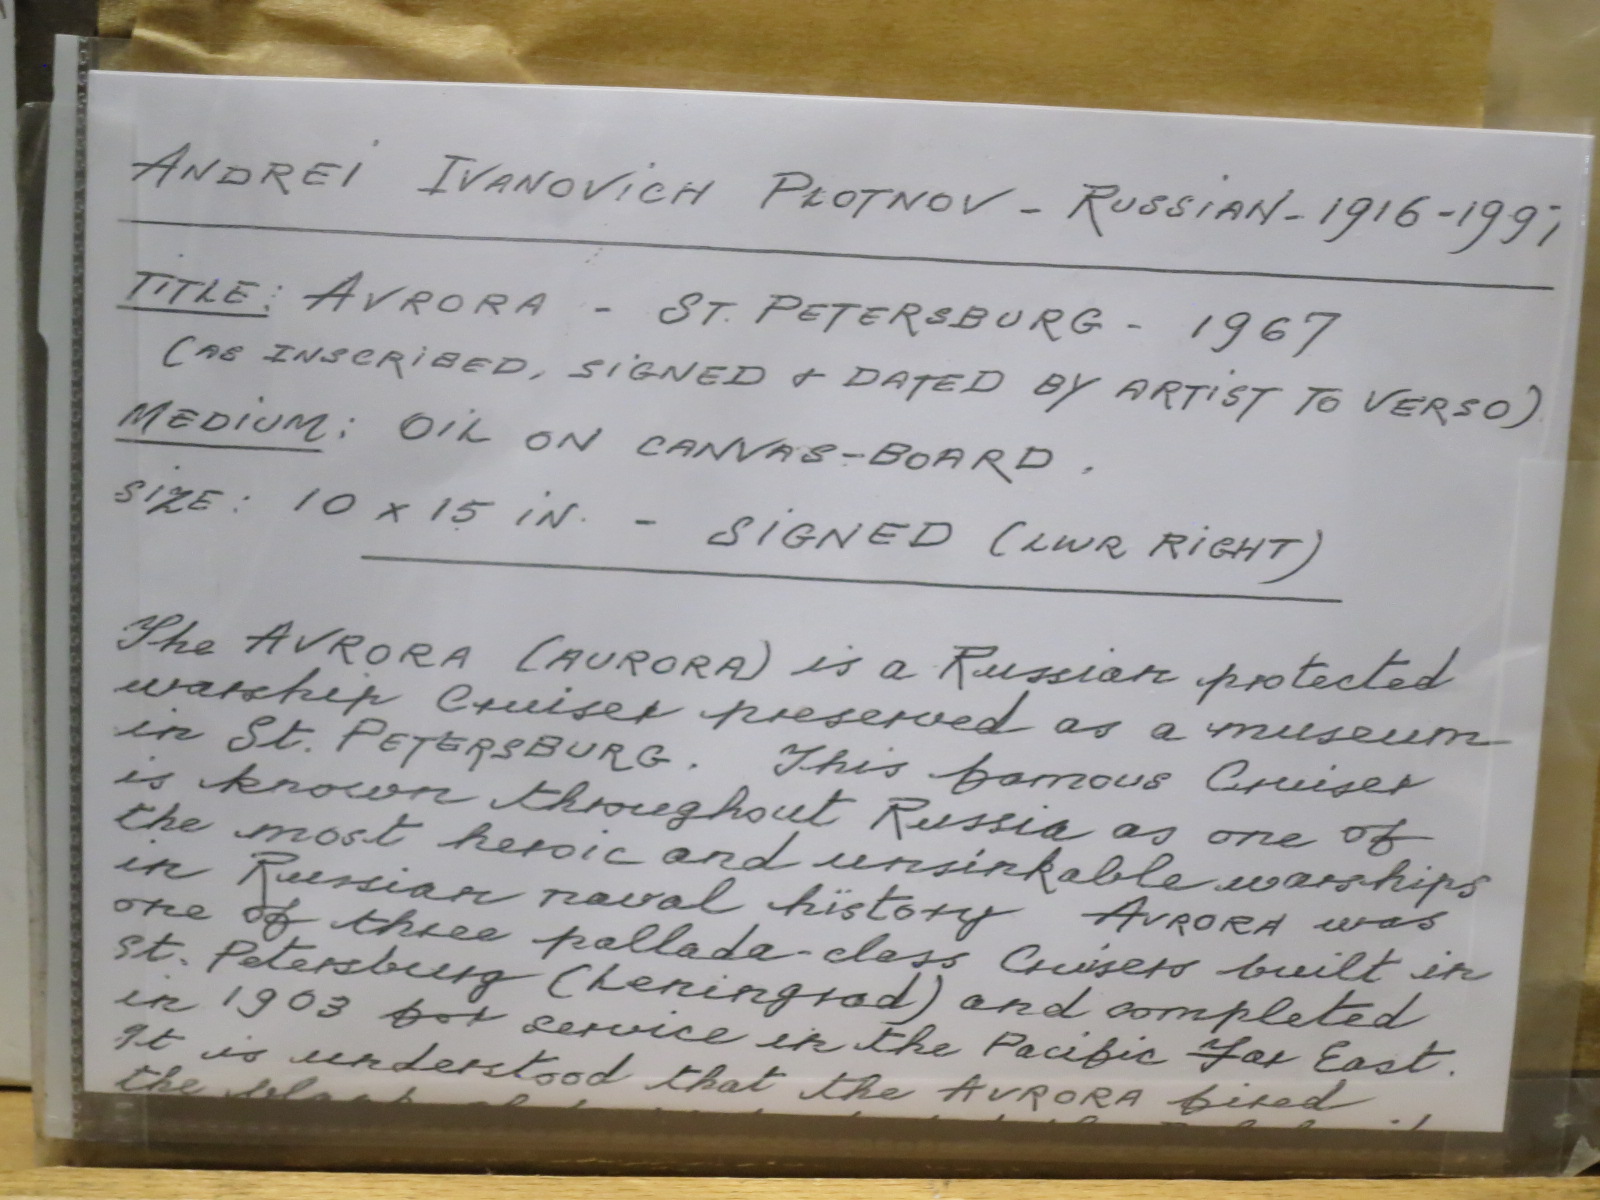 ANDREI IVANOVICH PLOTNOV - RUSSIAN - 1916-1997
TITLE: AVRORA - ST. PETERSBURG - 1967
(AS INSCRIBED, SIGNED & DATED BY ARTIST TO VERSO)
MEDIUM: OIL ON CANVAS-BOARD.
SIZE: 10 x 15 IN. - SIGNED (LWR RIGHT)
The AVRORA (AURORA) is a Russian protected
warship Cruiser preserved as a museum
in St. PETERSBURG. This famous Cruiser
is known throughout Russia as one of
the most heroic and unsinkable warships
in Russian naval history AVRORA was
one of three pallada-class Cruisers built in
St. Petersburg (Leningrad) and completed
in 1903 for service in the Pacific Far East.
It is understood that the AVRORA fired
the